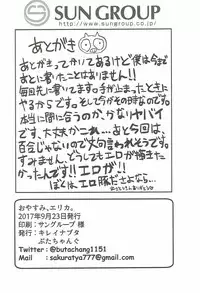 SUN GROUP
http://www.sungroup.co.jp/
あとがき
あとがきってかいてあるけど僕は今まで
あとに書いたことはありません!!
毎回先に書いてます。手が止まったときに
やるからです。そして今がその時なのです。
本当に間に合うのか、かなりヤバイ
です、大丈夫かこれ…あと今回は、
百合じゃないので文句言われそうです。
すみません、どうしてもエロが描きた
かったんです!!エロが!!
ぼくは、エロ豚ださよなら…
おやすみ、エリカ。
2017年9月23日発行
印刷:サングループ 様
発行:キレイナブタ
ぶたちゃんぐ
Twitter : @butachang1151
Mail : sakuratya777@gmail.com